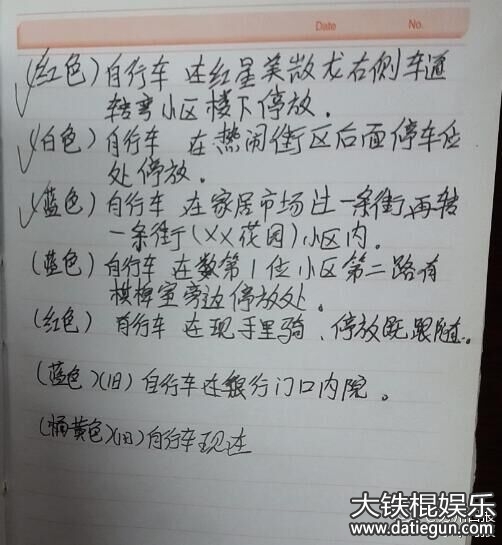 Date No.
(红色)自行车 在红星美散龙右侧车通
转弯小区楼下停放。
(白色)自行车 在热闹街区后面停车位
处停放。
(蓝色)自行车 在家居市场过一条街,再转
一条街(XX花园)小区内。
(蓝色)自行车 在数第1位小区第二路有
棋牌室旁边停放处。
(红色) 自行车 在现手里骑、停放既跟随。
(蓝色)(旧)自行车在银行门口内院。
(橘黄色)(旧)自行车现在
大铁棍娱乐
www.datiegun.com